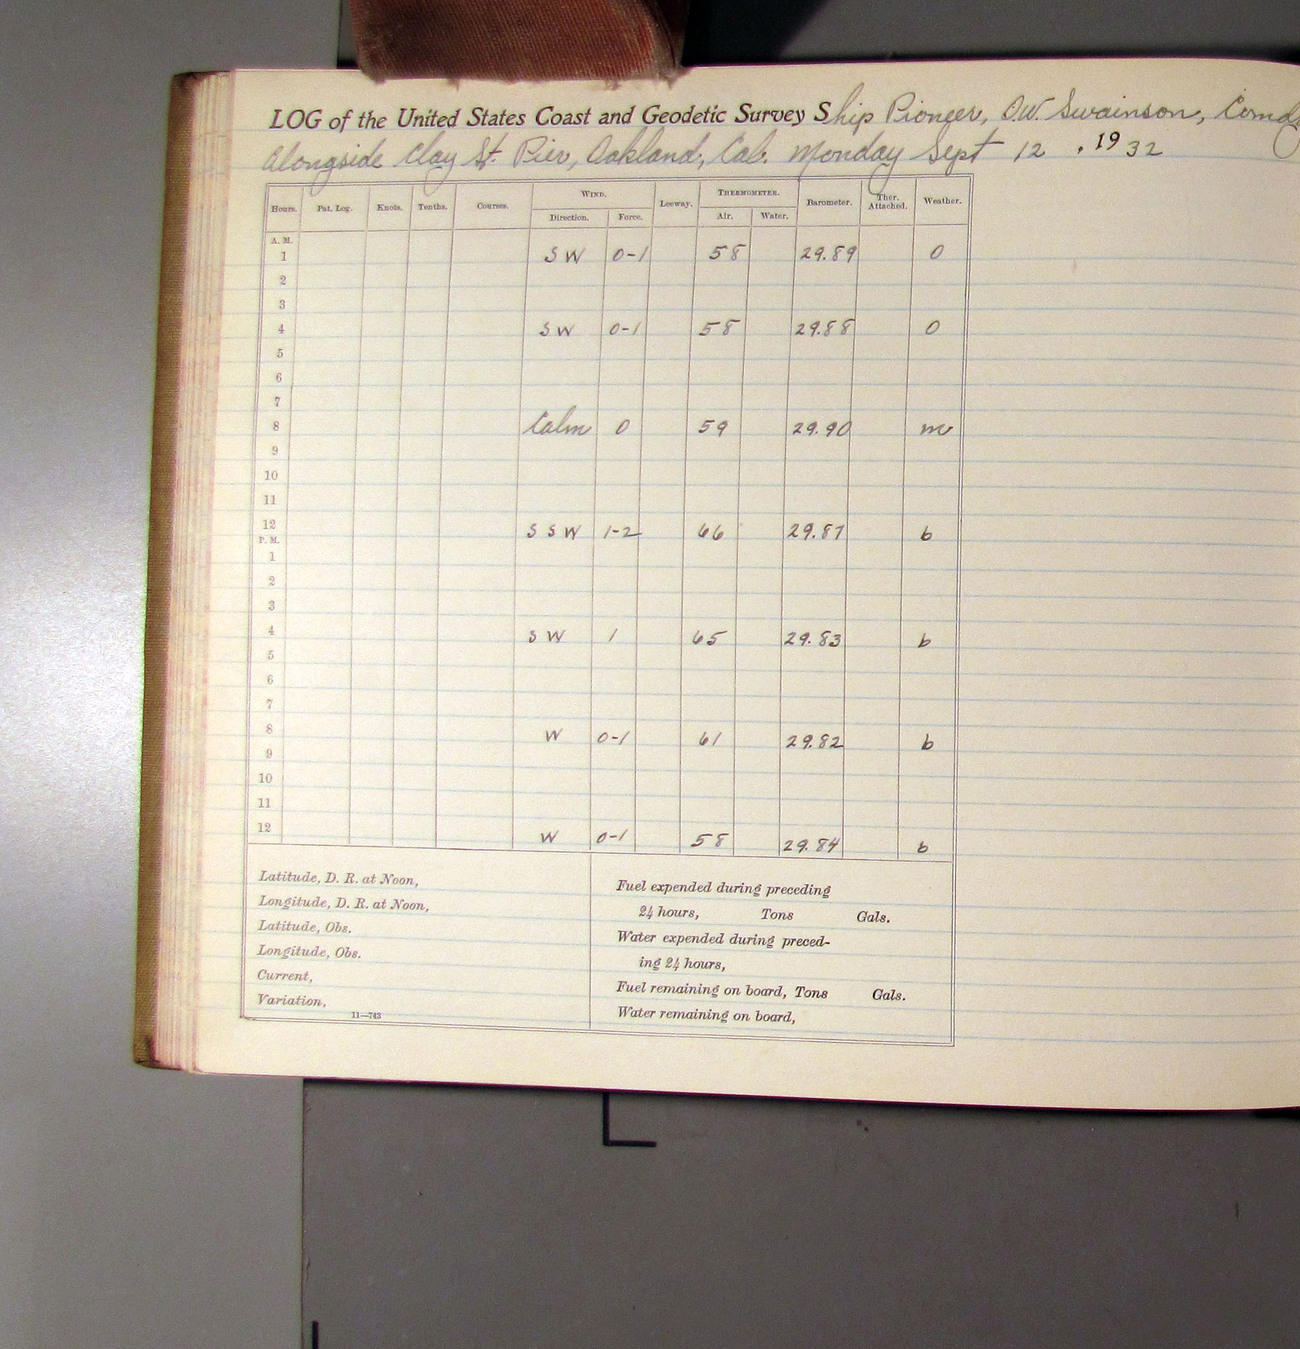 LOG of the United States Coast and Geodetic Survey Ship Pioneer, O.W. Swainson, Comdg
Alongside Clay St. Pier, Oakland, Cal. Monday Sept 12 , 1932
Hours. Pat. Log. Knots. Tenths. Courses. WIND. Direction. Force. Leeway. THERMOMETER. Air. Water. Barometer. Ther. Attached. Weather.
A. M.
1 SW 0-1 58 29.89 0
2
3
4 SW 0-1 58 29.88 0
5
6
7
8 Calm 0 59 29.90 m
9
10
11
12 SSW 1-2 66 29.87 b
P. M.
1
2
3
4 SW 1 65 29.83 b
5
6
7
8 W 0-1 61 29.82 b
9
10
11
12 W 0-1 58 29.84 b
Latitude, D. R. at Noon,
Longitude, D. R. at Noon,
Latitude, Obs.
Longitude, Obs.
Current,
Variation,
11—743
Fuel expended during preceding
24 hours, Tons Gals.
Water expended during preced-
ing 24 hours,
Fuel remaining on board, Tons Gals.
Water remaining on board,